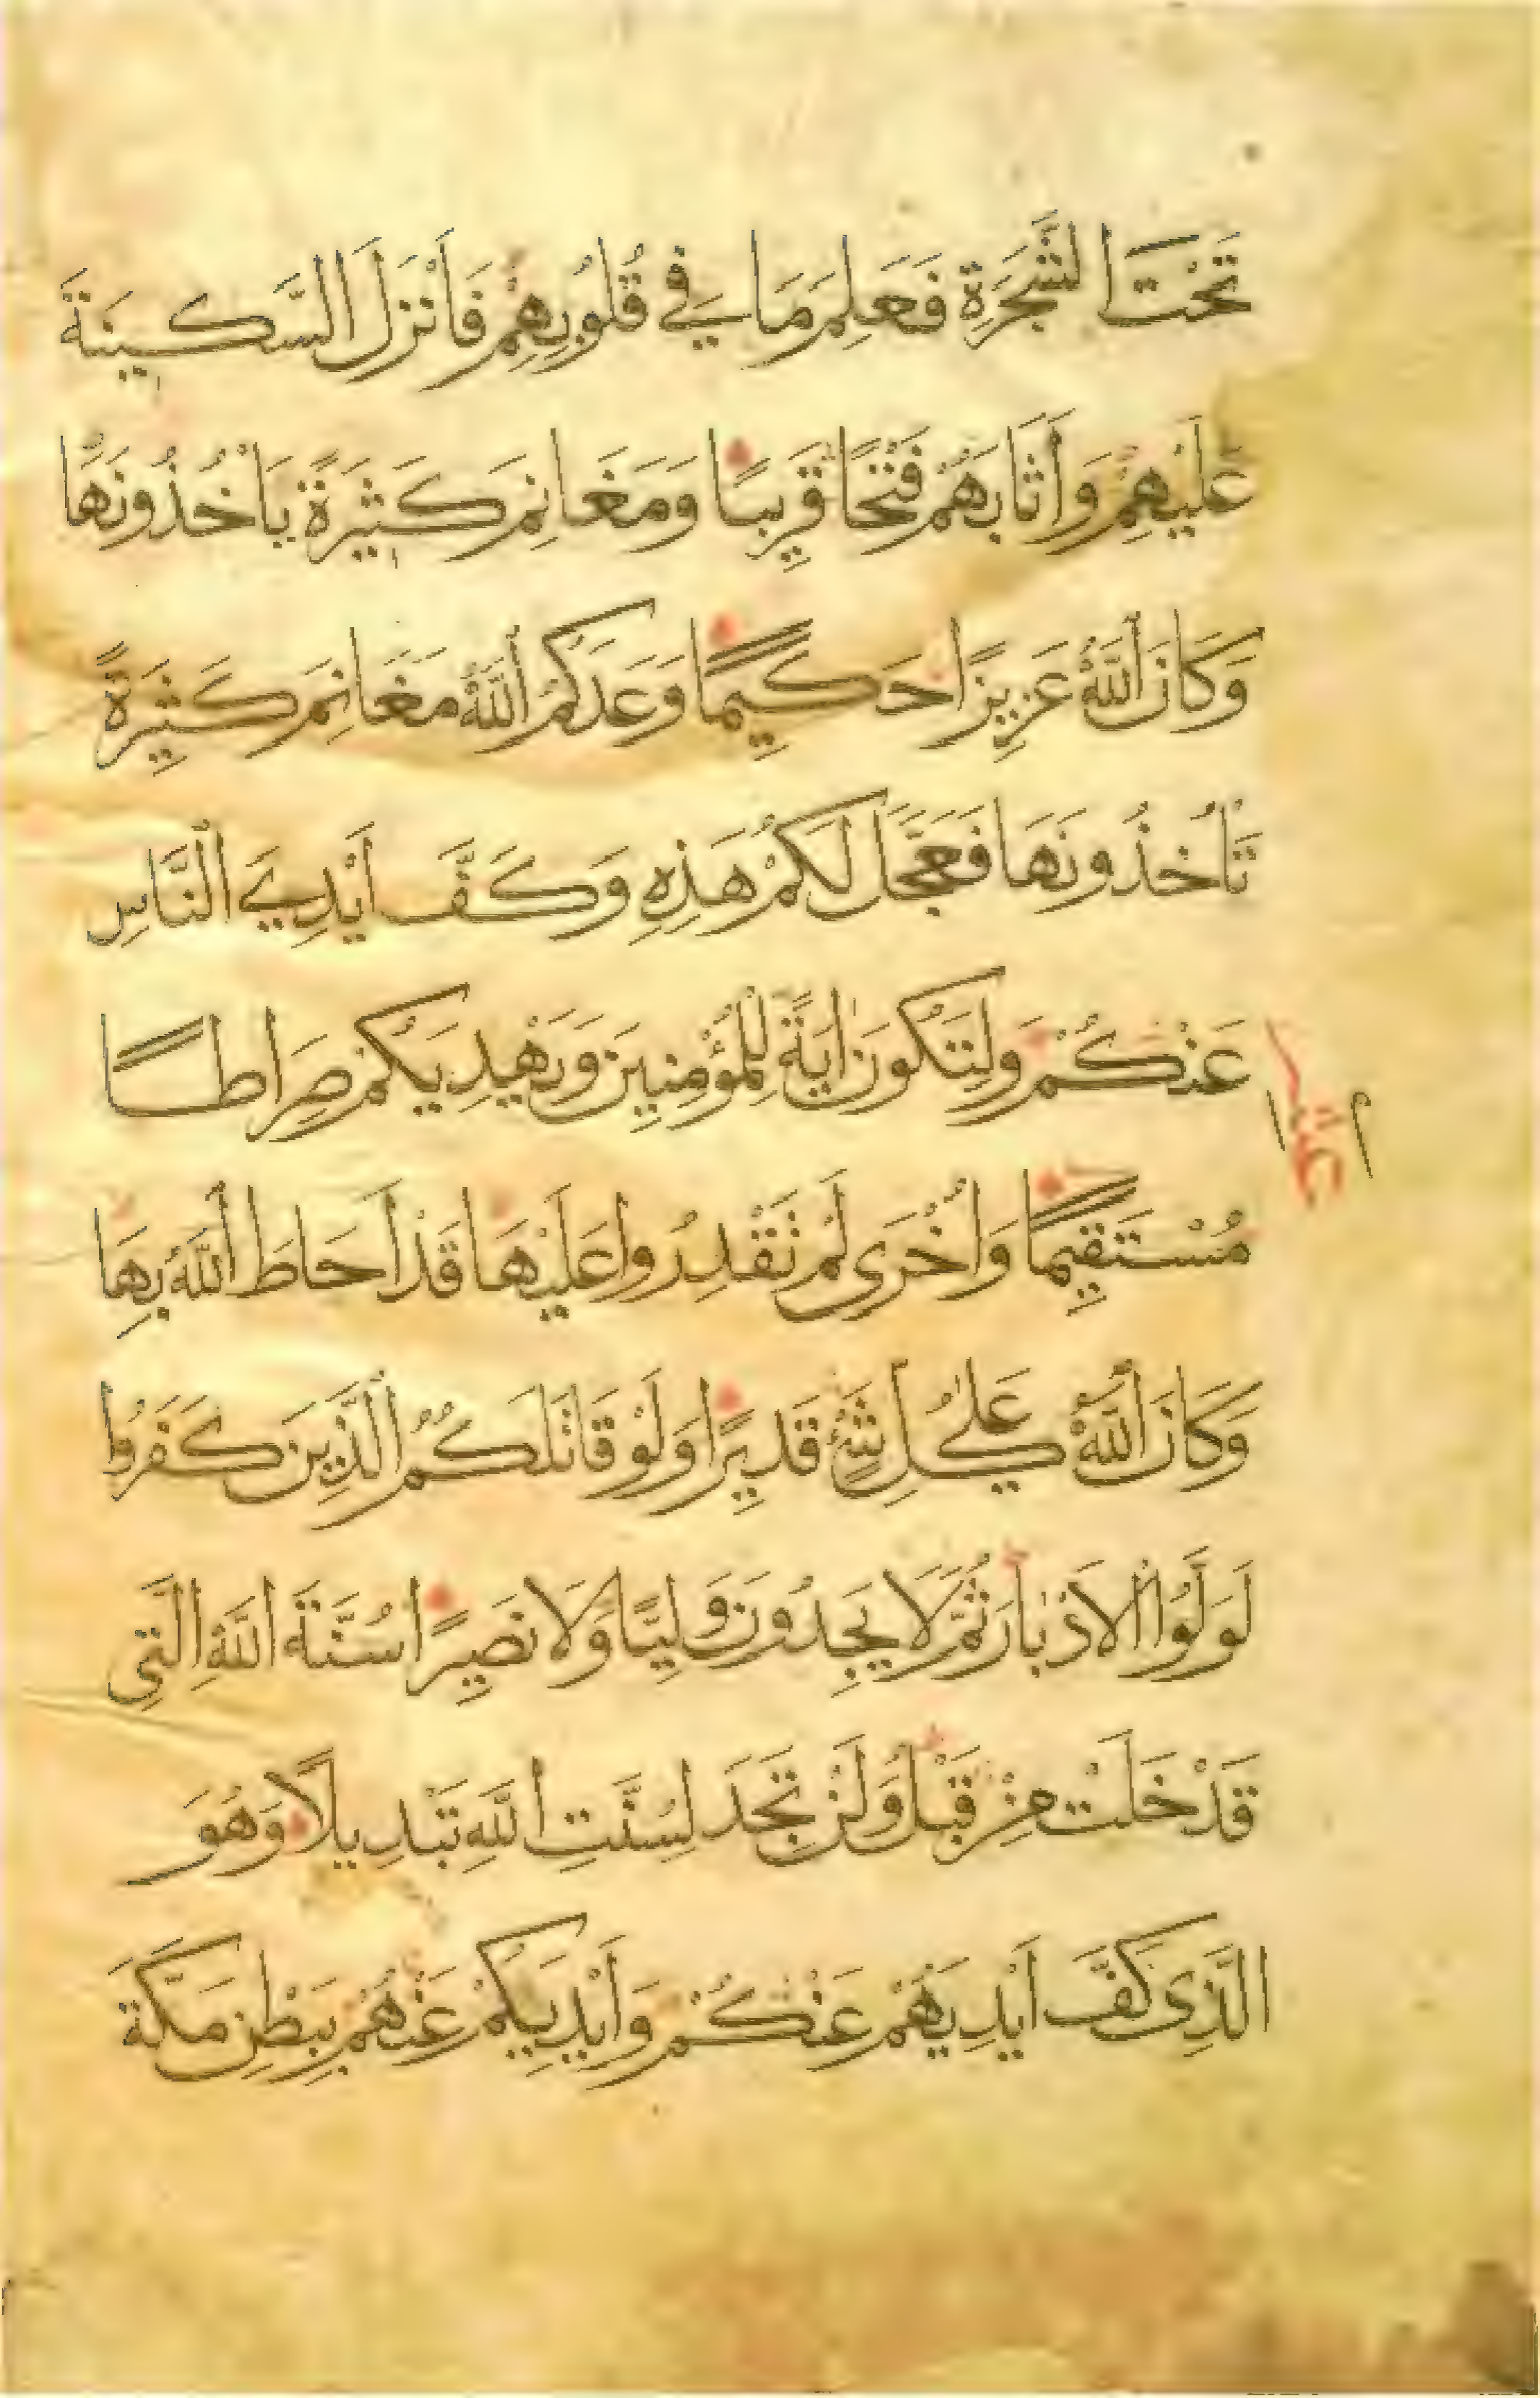 تَحْتَ الشَّجَرَةِ فَعَلِمَ مَا فِي قُلُوبِهِمْ فَأَنْزَلَ السَّكِينَةَ
عَلَيْهِمْ وَأَثَابَهُمْ فَتْحًا قَرِيبًا وَمَغَانِمَ كَثِيرَةً يَأْخُذُونَهَا
وَكَانَ اللَّهُ عَزِيزًا حَكِيمًا وَعَدَكُمُ اللَّهُ مَغَانِمَ كَثِيرَةً
تَأْخُذُونَهَا فَعَجَّلَ لَكُمْ هَذِهِ وَكَفَّ أَيْدِيَ النَّاسِ
عَنْكُمْ وَلِتَكُونَ اٰيَةً لِلْمُؤْمِنِينَ وَيَهْدِيَكُمْ صِرَاطًا
مُسْتَقِيمًا وَأُخْرَى لَمْ تَقْدِرُوا عَلَيْهَا قَدْ أَحَاطَ اللَّهُ بِهَا
وَكَانَ اللَّهُ عَلَىٰ كُلِّ شَيْءٍ قَدِيرًا وَلَوْ قَاتَلَكُمُ الَّذِينَ كَفَرُوا
لَوَلَّوُا الْأَدْبَارَ ثُمَّ لَا يَجِدُونَ وَلِيًّا وَلَا نَصِيرًا سُنَّةَ اللَّهِ الَّتِي
قَدْ خَلَتْ مِنْ قَبْلُ وَلَنْ تَجِدَ لِسُنَّتِ اللَّهِ تَبْدِيلًا وَهُوَ
الَّذِي كَفَّ أَيْدِيَهُمْ عَنْكُمْ وَأَيْدِيَكُمْ عَنْهُمْ بِبَطْنِ مَكَّةَ